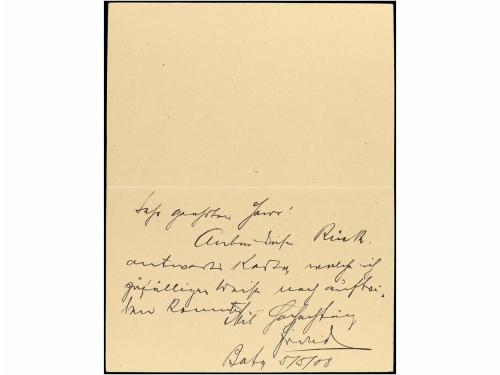 Sehr geehrter Herr!
Anbei diese Rück-
antworts Karte, welche ich
gefälliger Weise nach
Mit Hochachtung
Bata 5/5/08